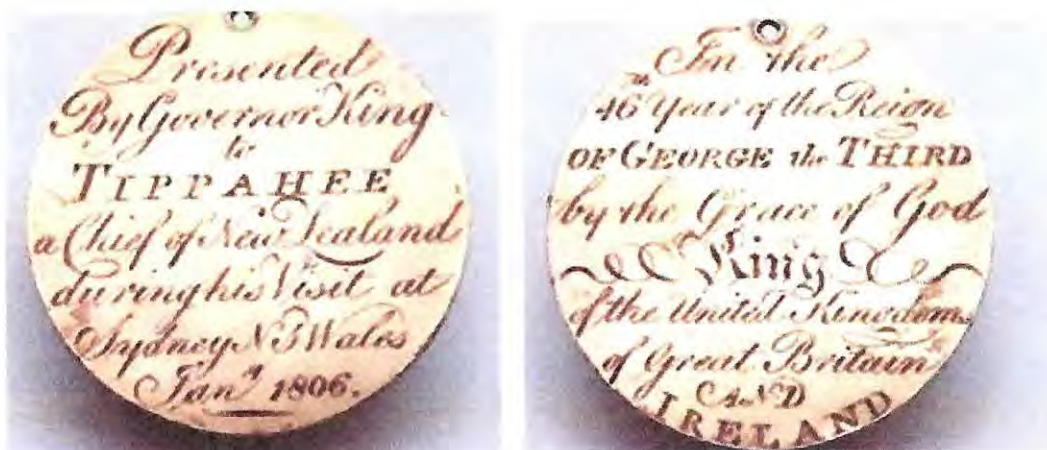 Presented
By Governor King
to
TIPPAHEE
a Chief of New Zealand
during his Visit at
Sydney N S Wales
Jany 1806.
In the
46th Year of the Reign
OF GEORGE the THIRD
by the Grace of God
King
of the United Kingdoms
of Great Britain
AND
IRELAND